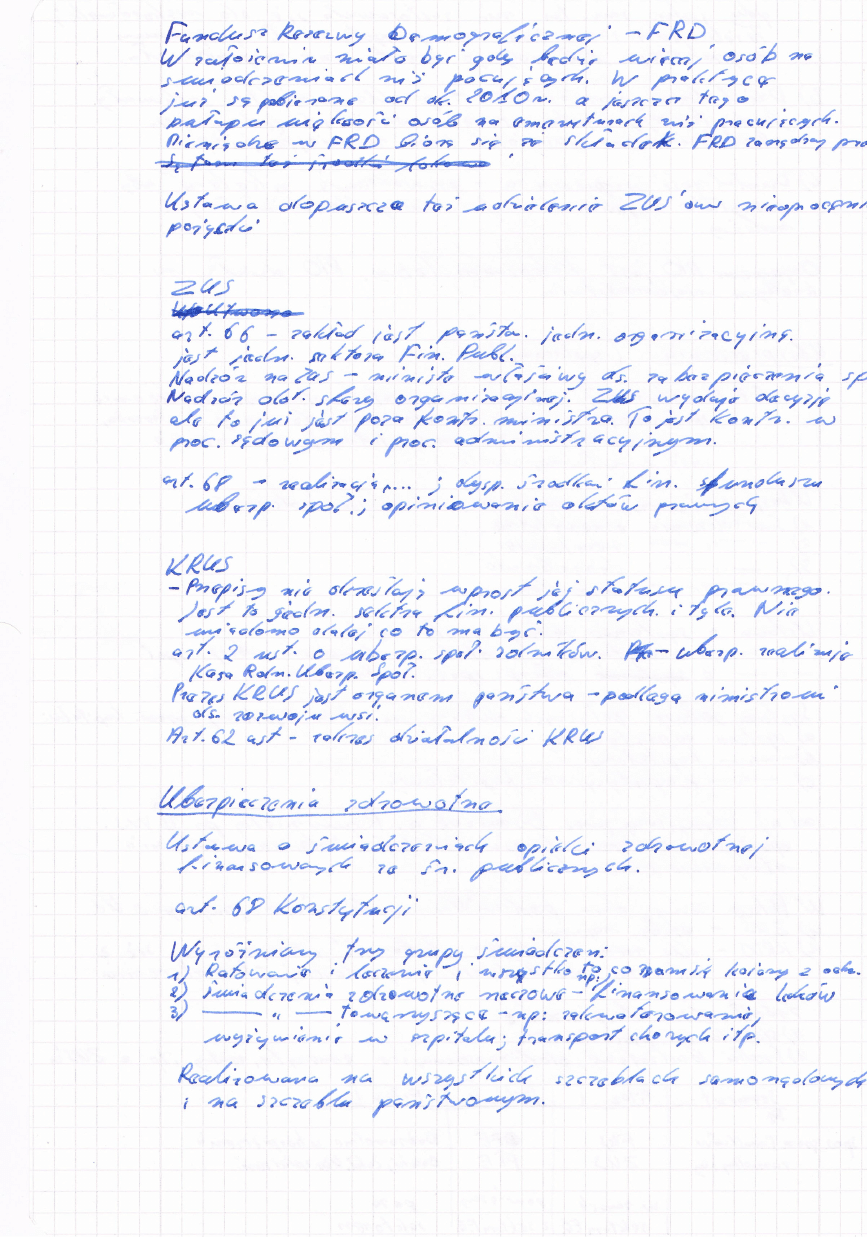 Fundusz Rezerwy Demograficznej - FRD
W założeniu miało być gdy będzie więcej osób na
świadczeniach niż pracujących. W praktyce
już są pobierane od ok. 2010r. a jeszcze tego
nie większość osób na emeryturach niż pracujących.
Pieniądze w FRD biorą się ze składek. FRD zarządzny
Są tam też środki
Ustawa dopuszcza też udzielenie ZUS'owi nieoprocent
pożyczki
ZUS
art. 66 - zakład jest państw. jedn. organizacyjną.
jest jedn. sektora Fin. Publ.
Nadzór na ZUS - minister właściwy ds. zabezpieczenia sp
Nadzór dot. sfery organizacyjnej. ZUS wydaje decyzje
ale to już jest poza kontr. ministra. To jest kontr. w
proc. sądowym i proc. administracyjnym.
art. 68 - realizacja.... ; dysp. środkami fin. funduszu
ubezp. społ.; opiniowanie aktów prawnych
KRUS
- Przepisy nie określają wprost jej statusu prawnego.
Jest to jedn. sektora fin. publicznych i tyle. Nie
wiadomo dalej co to ma być.
art. 2 ust. o ubezp. społ. rolników. - ubezp. realizuje
Kasa Roln. Ubezp. Społ.
Prezes KRUS jest organem państwa - podlega ministrowi
ds. rozwoju wsi.
Art. 62 ust - zakres działalności KRUS
Ubezpieczenia zdrowotne
Ustawa o świadczeniach opieki zdrowotnej
finansowanych ze śr. publicznych.
art. 68 Konstytucji
Wyróżniamy trzy grupy świadczeń:
1) Ratowanie i leczenie i wszystko to co nam się kojarzy z ochr.
2) świadczenia zdrowotne rzeczowe - np: finansowanie leków
3) —— „ —— towarzyszące - np: zakwaterowanie,
wyżywienie w szpitalu; transport chorych itp.
Realizowana na wszystkich szczeblach samorządowych
i na szczeblu państwowym.